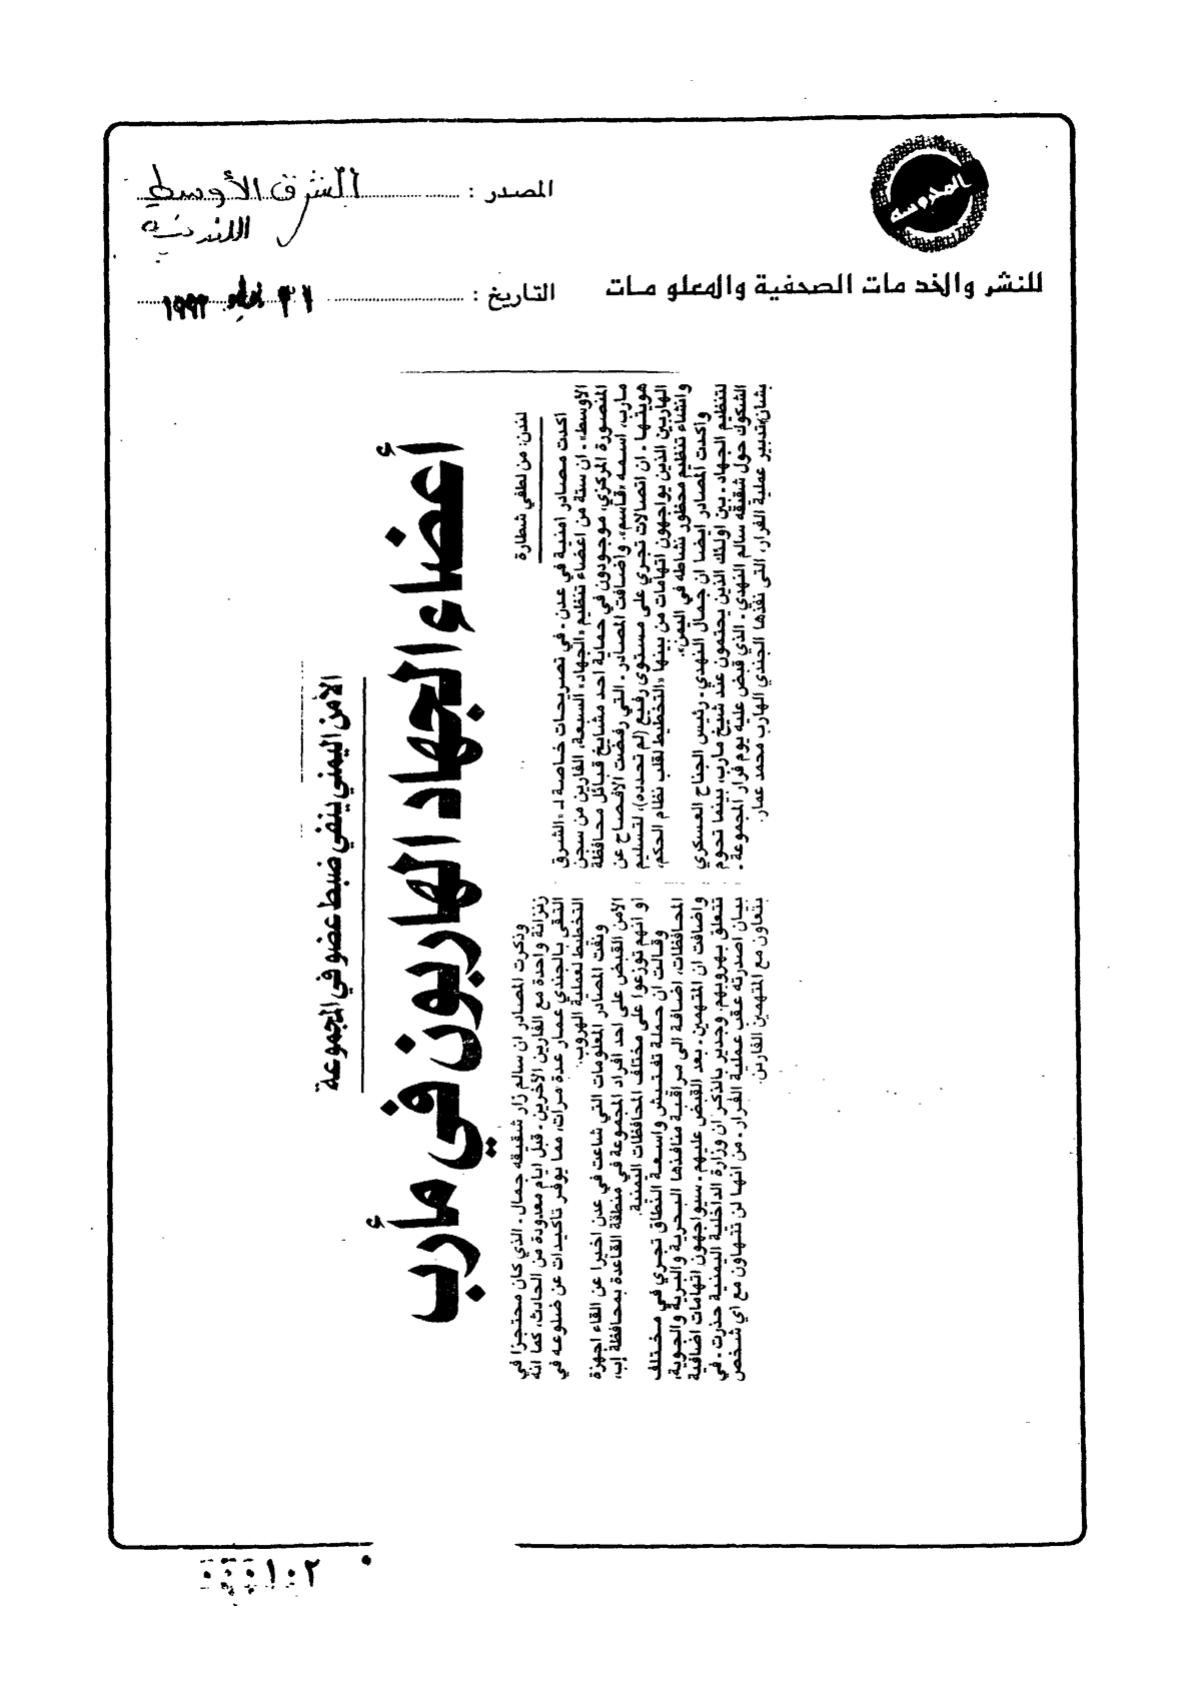 المحروسة
للنشر والخدمات الصحفية والمعلومات
المصدر : الشرق الأوسط
اللندنية
التاريخ : ٣١ يوليو ١٩٩٣
الأمن اليمني ينفي ضبط عضو في المجموعة
أعضاء الجهاد الهاربون في مأرب
لندن: من لطفي شطارة
اكدت مصادر امنية في عدن ـ في تصريحات خاصة لـ «الشرق
الأوسط» ـ ان ستة من اعضاء تنظيم «الجهاد» السبعة، الفارين من سجن
المنصورة المركزي، موجودون في حماية احد مشايخ قبائل محافظة
مارب، اسمه «قاسم». واضافت المصادر ـ التي رفضت الافصاح عن
هويتها ـ ان اتصالات تجري على مستوى رفيع (لم تحدده)، لتسليم
الهاربين الذين يواجهون اتهامات من بينها «التخطيط لقلب نظام الحكم،
وانشاء تنظيم محظور نشاطه في اليمن».
واكدت المصادر ايضا ان جمال النهدي ـ رئيس الجناح العسكري
لتنظيم الجهاد ـ بين اولئك الذين يحتمون عند شيخ مارب، بينما تحوم
الشكوك حول شقيقه سالم النهدي ـ الذي قبض عليه يوم فرار المجموعة ـ
بشان تدبير عملية الفرار، التي نفذها الجندي الهارب محمد عمار.
وذكرت المصادر ان سالم زار شقيقه جمال ـ الذي كان محتجزا في
زنزانة واحدة مع الفارين الآخرين ـ قبل ايام معدودة من الحادث، كما انه
التقى بالجندي عمار عدة مرات، مما يوفر تاكيدات عن ضلوعه في
التخطيط لعملية الهروب.
ونفت المصادر المعلومات التي شاعت في عدن اخيرا عن القاء اجهزة
الأمن القبض على احد افراد المجموعة في منطقة القاعدة بمحافظة إب،
او انهم توزعوا على مختلف المحافظات اليمنية.
وقالت ان حملة تفتيش واسعة النطاق تجري في مختلف
المحافظات، اضافة الى مراقبة منافذها البحرية والبرية والجوية،
واضافت ان المتهمين ـ بعد القبض عليهم ـ سيواجهون اتهامات اضافية
تتعلق بهروبهم. وجدير بالذكر ان وزارة الداخلية اليمنية حذرت ـ في
بيان اصدرته عقب عملية الفرار ـ من انها لن تتهاون مع اي شخص
يتعاون مع المتهمين الفارين.
١٠٢